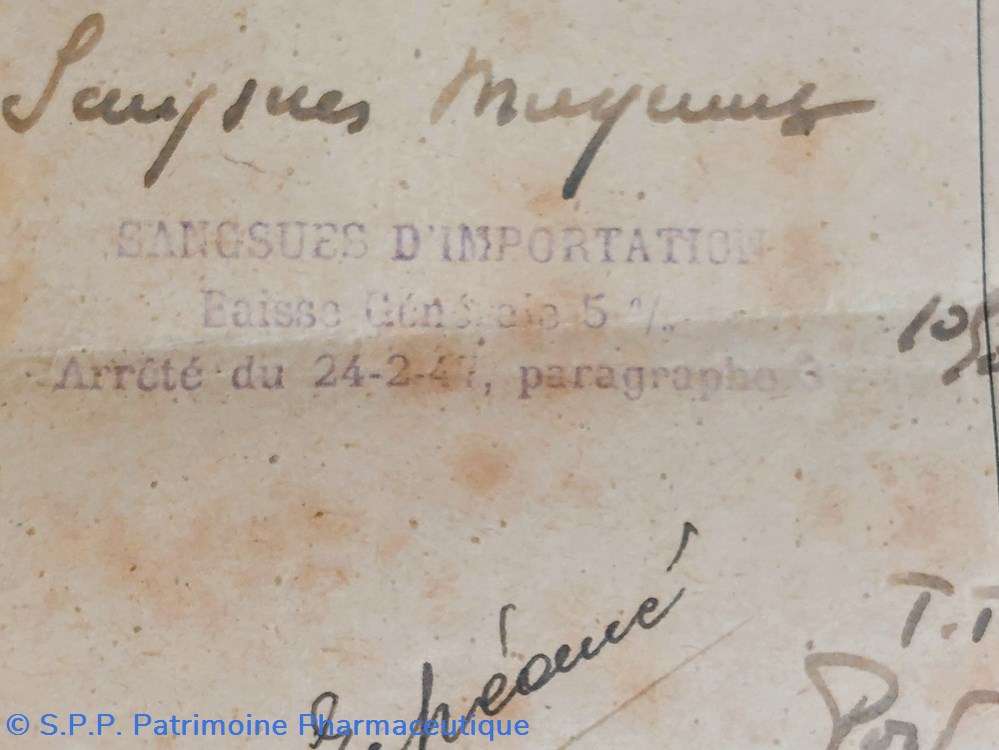 Sangsues Moyennes
SANGSUES D'IMPORTATION
Baisse Générale 5 %
Arrêté du 24-2-47, paragraphe 3
10%
T.T
Port
© S.P.P. Patrimoine Pharmaceutique